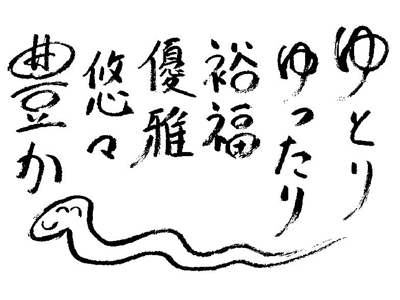 ゆとり
ゆったり
裕福
優雅
悠々
豊か